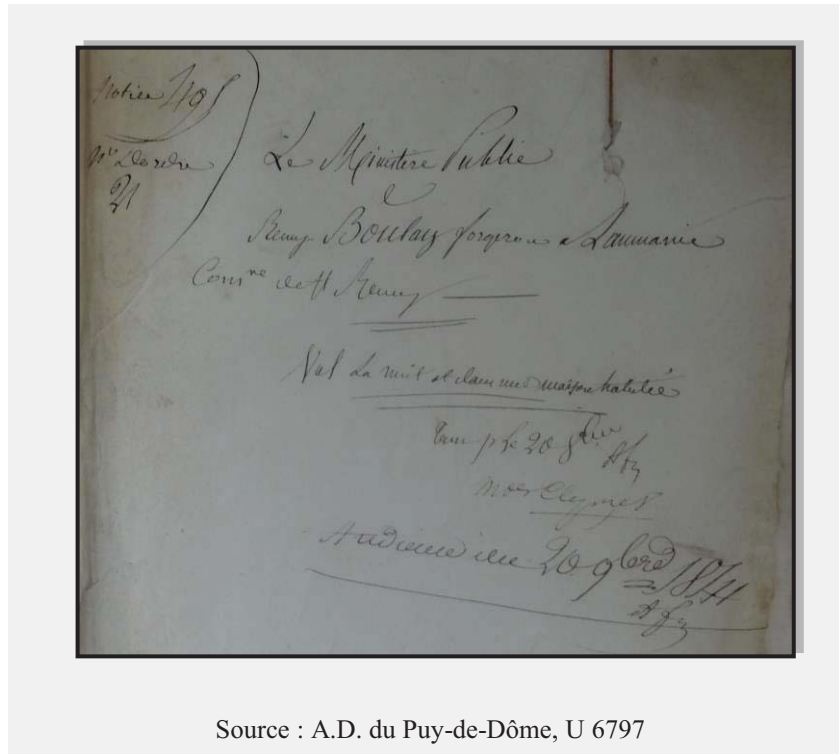 Notice 495
Nº D'ordre
21
Le Ministère Public
C
Remy Boulay forgeron a
Com.ne de St Remy
Vol la nuit et dans une maison habitée
20 9bre
Audience du 20 9bre 1841
Source : A.D. du Puy-de-Dôme, U 6797